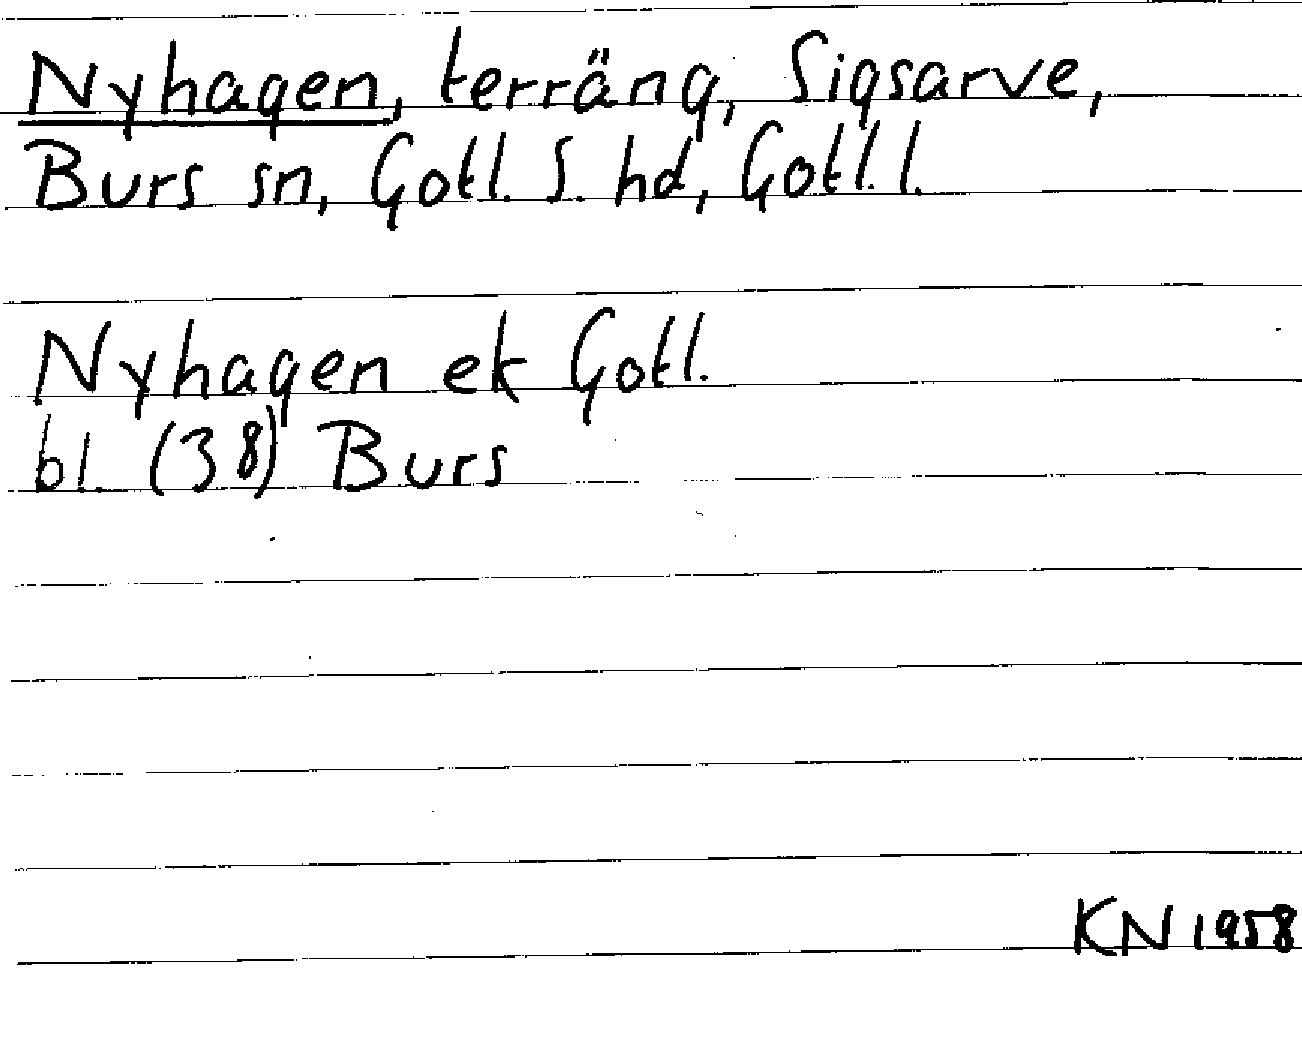 Nyhagen, terräng, Sigsarve,
Burs sn, Gotl. S. hd, Gotl. l.
Nyhagen ek Gotl.
bl. (38) Burs
KN 1958